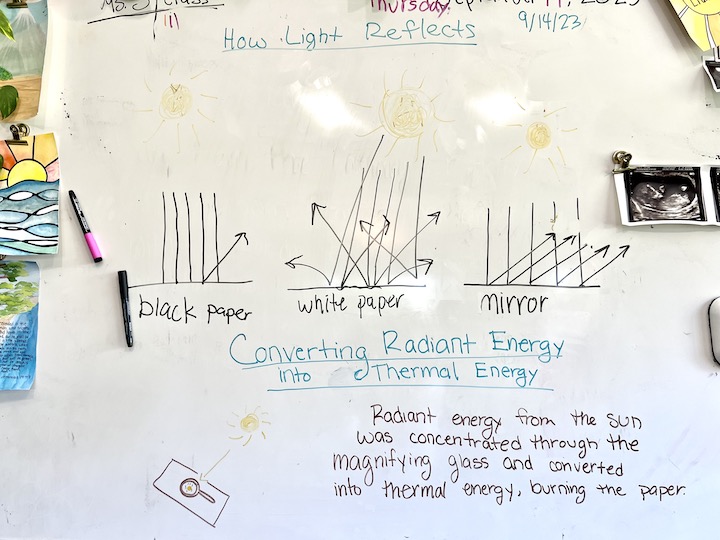 class
Thursday,
9/14/23
How Light Reflects
black paper
white paper
mirror
Converting Radiant Energy
into Thermal Energy
Radiant energy from the sun
was concentrated through the
magnifying glass and converted
into thermal energy, burning the paper.